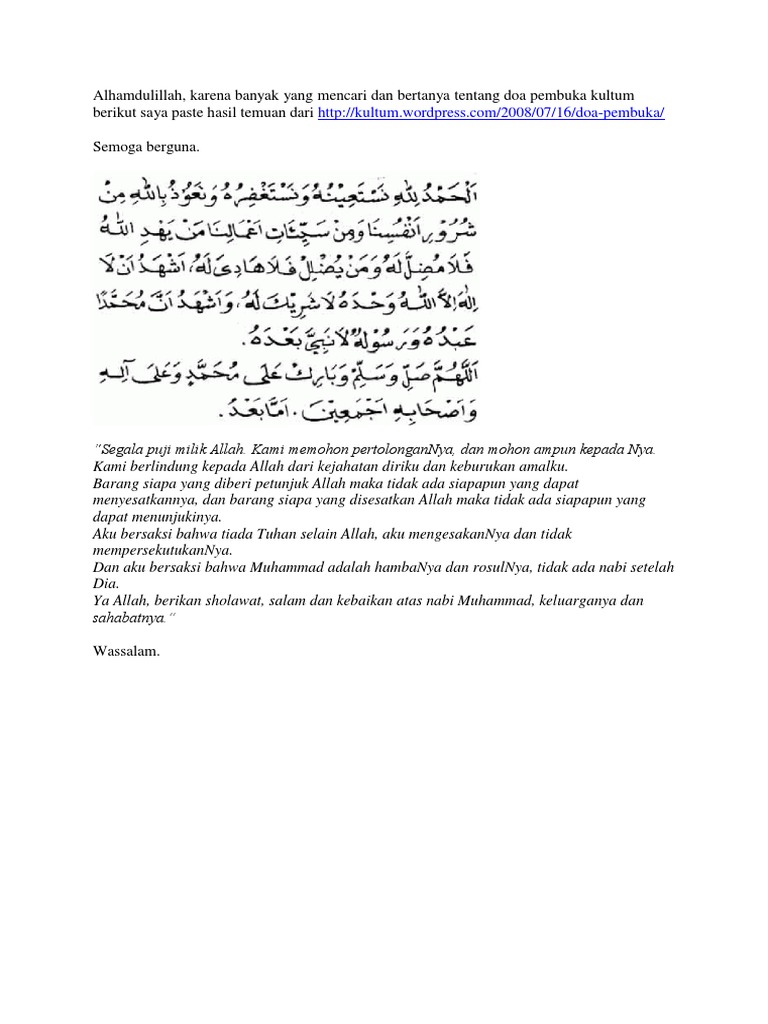 Alhamdulillah, karena banyak yang mencari dan bertanya tentang doa pembuka kultum
berikut saya paste hasil temuan dari http://kultum.wordpress.com/2008/07/16/doa-pembuka/
Semoga berguna.
اَلْحَمْدُ لِلّٰهِ نَسْتَعِيْنُهُ وَنَسْتَغْفِرُهُ وَنَعُوْذُ بِاللّٰهِ مِنْ
شُرُوْرِ اَنْفُسِنَا وَمِنْ سَيِّئَاتِ اَعْمَالِنَا مَنْ يَهْدِ اللّٰهُ
فَلَا مُضِلَّ لَهُ وَمَنْ يُضْلِلْ فَلَا هَادِيَ لَهُ، اَشْهَدُ اَنْ لَا
اِلٰهَ اِلاَّ اللّٰهُ وَحْدَهُ لَا شَرِيْكَ لَهُ، وَاَشْهَدُ اَنَّ مُحَمَّدًا
عَبْدُهُ وَرَسُوْلُهُ لَا نَبِيَّ بَعْدَهُ.
اَللّٰهُمَّ صَلِّ وَسَلِّمْ وَبَارِكْ عَلَى مُحَمَّدٍ وَعَلَى آلِهِ
وَاَصْحَابِهِ اَجْمَعِيْنَ. اَمَّا بَعْدُ.
"Segala puji milik Allah. Kami memohon pertolonganNya, dan mohon ampun kepada Nya.
Kami berlindung kepada Allah dari kejahatan diriku dan keburukan amalku.
Barang siapa yang diberi petunjuk Allah maka tidak ada siapapun yang dapat
menyesatkannya, dan barang siapa yang disesatkan Allah maka tidak ada siapapun yang
dapat menunjukinya.
Aku bersaksi bahwa tiada Tuhan selain Allah, aku mengesakanNya dan tidak
mempersekutukanNya.
Dan aku bersaksi bahwa Muhammad adalah hambaNya dan rosulNya, tidak ada nabi setelah
Dia.
Ya Allah, berikan sholawat, salam dan kebaikan atas nabi Muhammad, keluarganya dan
sahabatnya."
Wassalam.